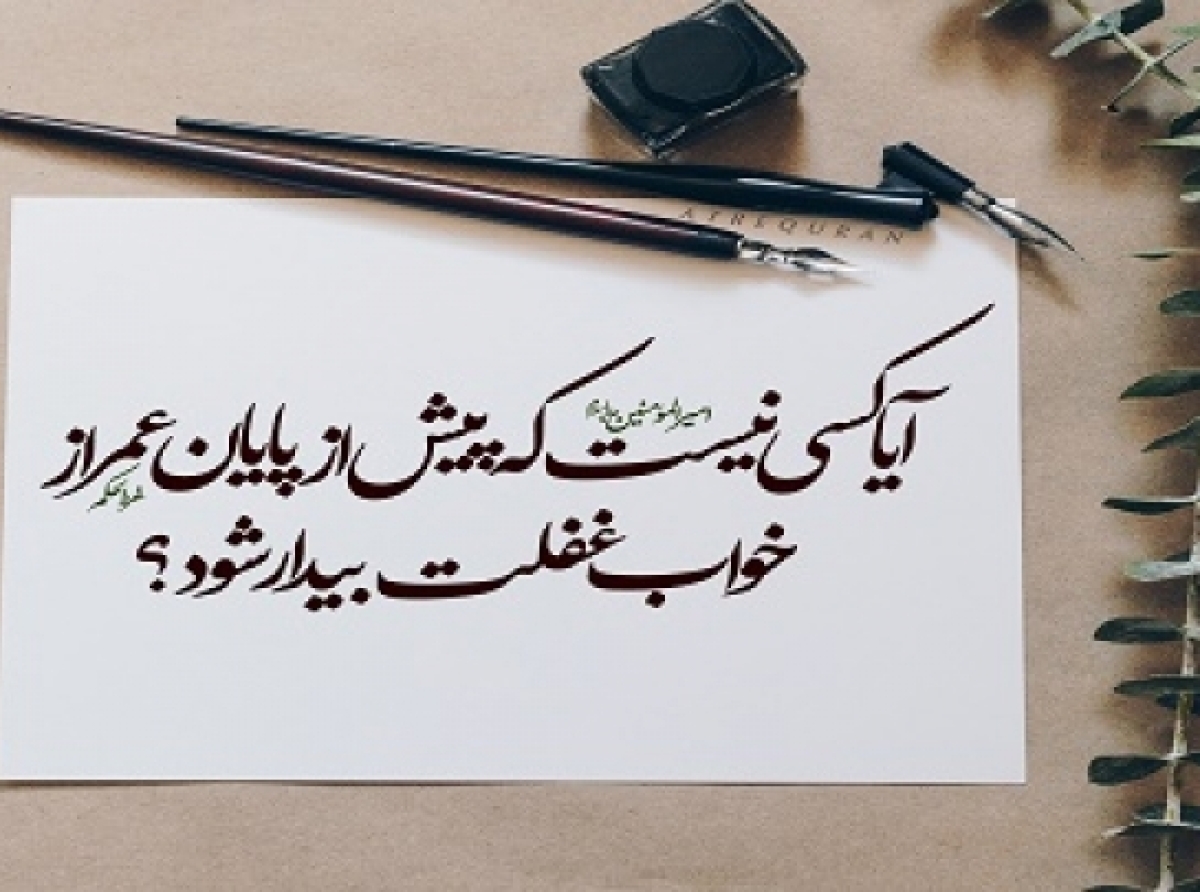 AFREQURAN
آیا کسی نیست که پیش از پایان عمر از
امیرالمؤمنین علیه السلام
غررالحکم
خواب غفلت بیدار شود ؟